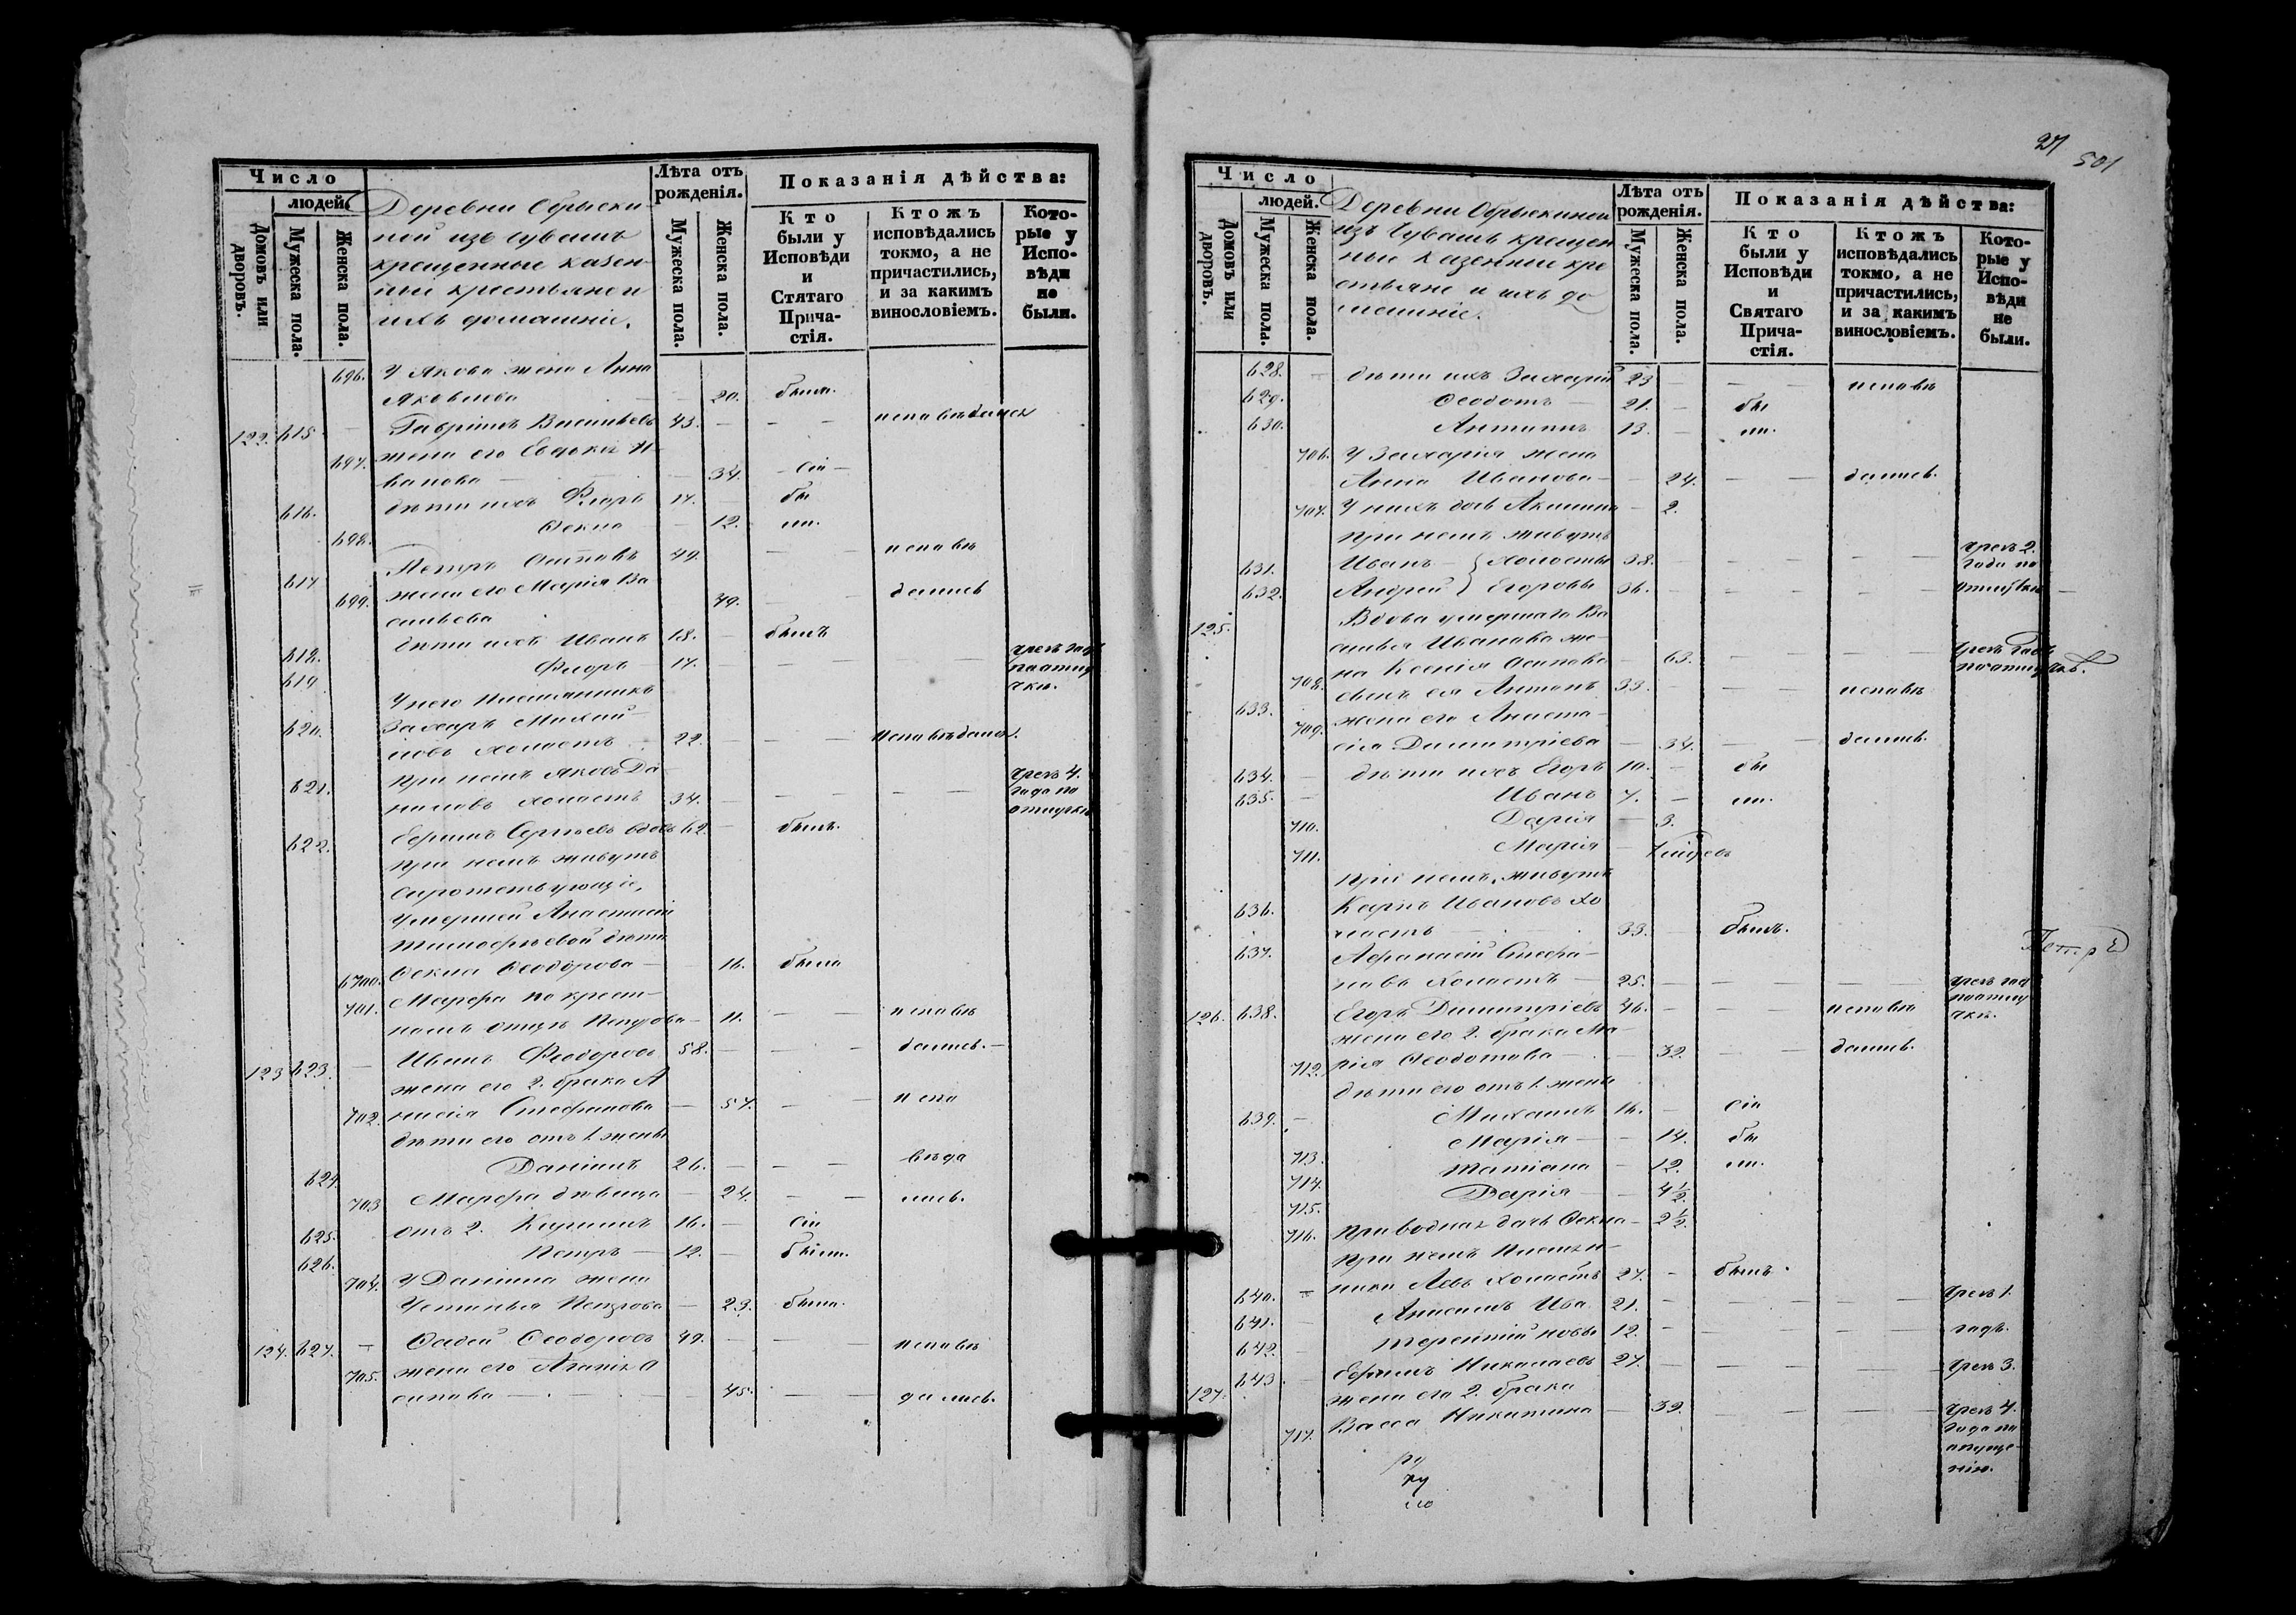 Число
людей.
Домовъ или дворовъ.
Мужеска пола.
Женска пола.
Деревни
ной изъ Чувашъ
крещенные казен-
ные крестьяне и
ихъ домашніе.
Лѣта отъ рожденія.
Мужеска пола.
Женска пола.
Показанія дѣйства:
Кто были у Исповѣди и Стятаго Прича-стія.
Ктожъ исповѣдались токмо, а не причастились, и за какимъ винословіемъ.
Кото-рые у Испо-вѣди не были.
696. У Якова жена Анна
Яковлева — 20. была.
122. 615. Гавріилъ Васильевъ 43. — — исповѣдался
697. жена его Евдокія И-
ванова — 34. — сіи —
616. дѣти ихъ Флоръ 17. — бы
698. Ѳекла — 12. ли.
617 Петръ Осиповъ 49. — — исповѣ
699. жена его Марія Ва
сильева 49. — дались
618. дѣти ихъ Иванъ 18. — былъ
619 Флоръ — 17. — — — чрезъ годъ
по отлу
чкѣ.
У него племянникъ
620. Захаръ Михай-
ловъ холостъ 22. — — исповѣдался.
621. При немъ Яковъ Да
ниловъ холостъ 34. — — — — чрезъ 4.
года по
отлучкѣ
622. Ефимъ Сергѣевъ вдовъ 62. — былъ.
При немъ живутъ
сиротствующіе,
Умершей Анастасіи
Тимофѣевой дѣти
6700. Ѳекла Ѳеодорова — 16. была
701. Марфа по крест-
номъ отцѣ Петрова — 11. — — исповѣ
123 623. — Иванъ Ѳеодоровъ 58. — — дались. —
жена его 2. брака А
702. нисія Стефанова — 57. — — испо
дѣти его отъ 1. жены
624 Даніилъ 26. — — — вѣда
703 Марфа дѣвица — 24. — — лись.
625. отъ 2. Кириллъ 16. — сіи
626. Петръ — 12. — были.
704. У Даніила жена
Устинья Петрова — 23. была.
124. 627. — Ѳадей Ѳеодоровъ 49. — — исповѣ
705. жена его Агапія О
сипова — — 45. — — дались.
27
501
Число
людей.
Домовъ или дворовъ.
Мужеска пола.
Женска пола.
Деревни
изъ Чувашъ крещен
ные казенные кре
стьяне и ихъ до
машніе.
Лѣта отъ рожденія.
Мужеска пола.
Женска пола.
Показанія дѣйства:
Кто были у Исповѣди и Святаго Прича-стія.
Ктожъ исповѣдались токмо, а не причастились, и за какимъ винословіемъ.
Кото-рые у Испо-вѣди не были.
628. — дѣти ихъ Захарій 23 — — — исповѣ
629. Ѳеодотъ — 21. — бы
630. Антипъ 13. — ли.
706. У Захарія жена
Анна Иванова — — 24. — — дались.
707. У нихъ дочь Акилина — 2.
При немъ живутъ
631. Иванъ — } холосты 38. — — — — чрезъ 2.
года по
632. Андрей } Егоровы 36. — — — — отлучкѣ —
125. Вдова умершаго Ва
силья Иванова же-
708. на Ксенія Осипова — 63. — — — чрезъ годъ
по отлучкѣ.
633. сынъ ея Антонъ 33. — — исповѣ
709. жена его Анаста-
сія Димитріева — 34. — — дались.
634. — дѣти ихъ Егоръ 10. — бы
635. — Иванъ 7. — ли.
710. Дарія — 3.
711. Марія —
При немъ живутъ
636. Карпъ Ивановъ хо
лостъ — 33. — былъ.
Петръ
637. Афанасій Стефа-
новъ холостъ — 25. — — — — чрезъ год
по отлу
чкѣ.
126. 638. Егоръ Димитріевъ 46. — — исповѣ
жена его 2. брака Ма-
712. рія Ѳеодотова — — 32. — — дались.
дѣти его отъ 1. жены
639. — Михаилъ 16. — сіи
713. Марія — — 14. бы
714. Татіана — 12. ли.
715. Дарія — — 4½.
716. Приводная дочь Ѳекла — 2½.
При немъ племян-
640. — ники Левъ холостъ 27. — былъ.
641. — Анисимъ Ива 21. — — — — чрезъ 1.
642. — Терентій новы 12. — — — годъ.
127. 643. — Ефимъ Николаевъ 27. — — — — чрезъ 3.
жена его 2. брака
717. Васса Никитина — 39. — — — чрезъ 4.
года по
опуще-
нію.